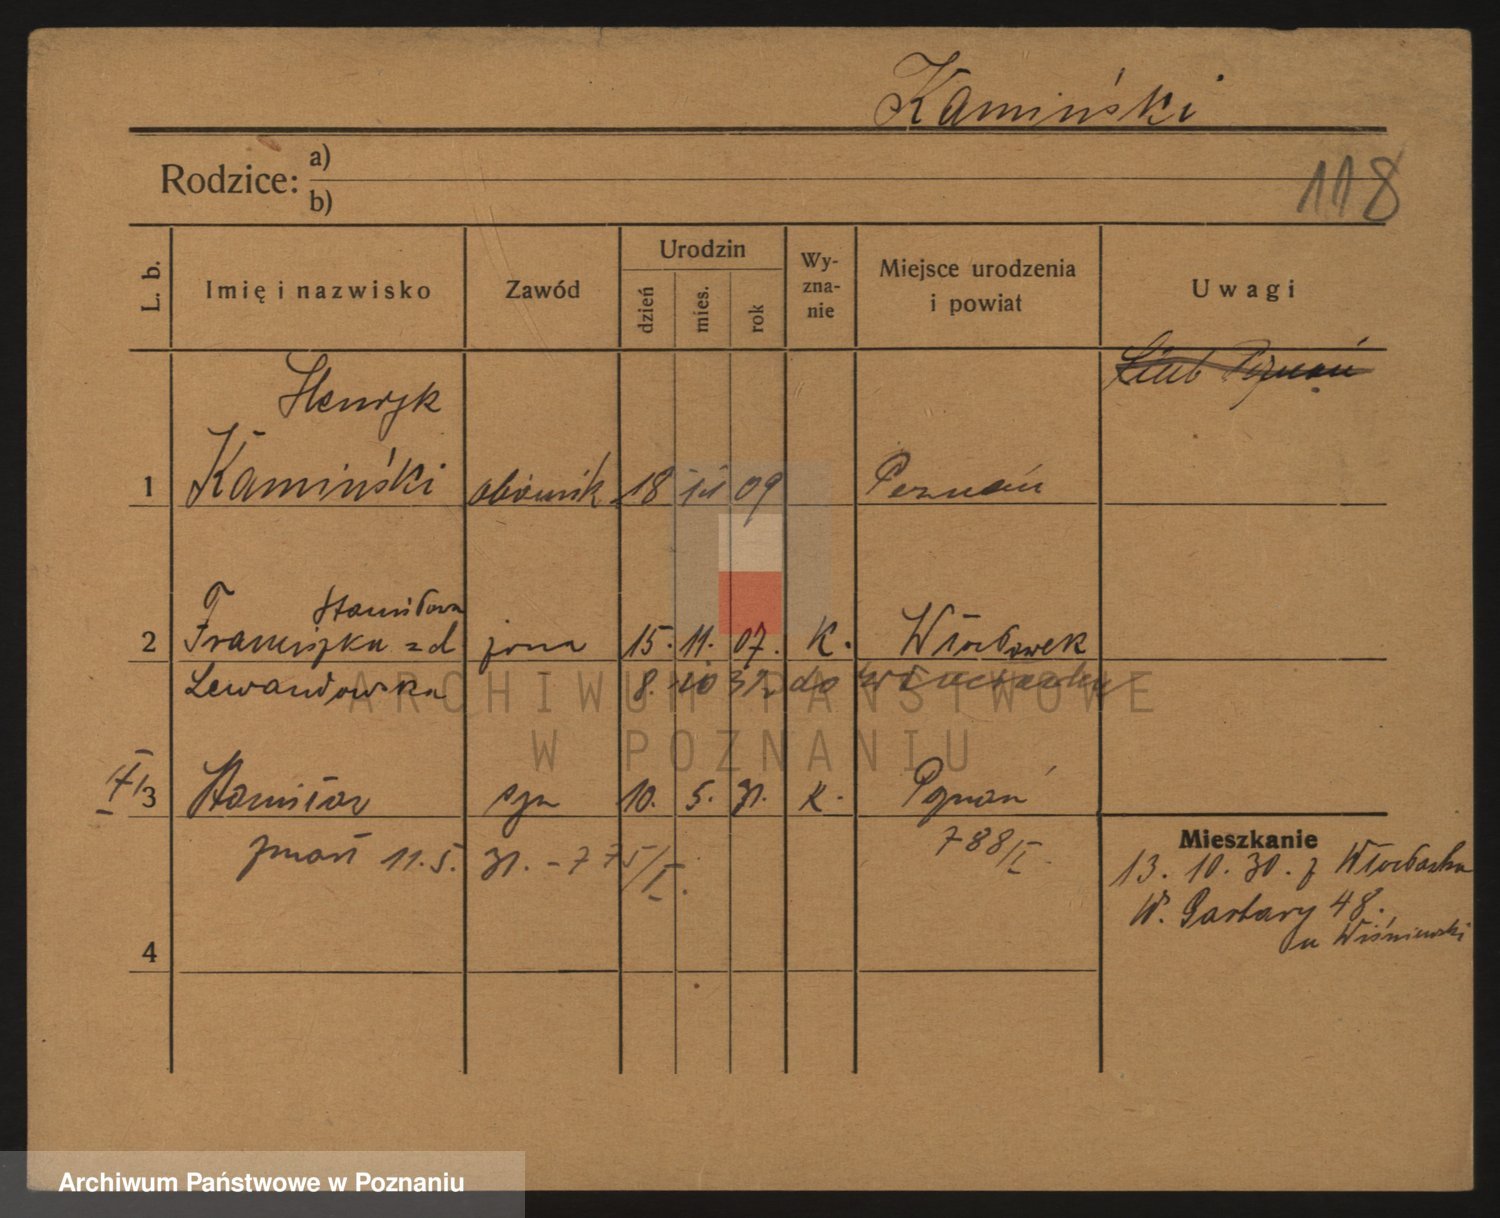 Kamiński
Rodzice: a)
b)
118
L. b.
Imię i nazwisko
Zawód
Urodzin
dzień
mies.
rok
Wy-
zna-
nie
Miejsce urodzenia
i powiat
Uwagi
Poznań
Henryk
1 Kamiński 18 09 Poznań
Stanisława
2 Franciszka zd żona 15. 11. 07. K. Włocławek
Lewandowska 8. 10 32 do
ARCHIWUM PAŃSTWOWE
W POZNANIU
3 Stanisław syn 10. 5. 31. K. Poznań
zmarł 11. 5. 31. - 775/I. 788/I.
Mieszkanie
13. 10. 30. z Włocławka
W. Garbary 48.
u Wiśniewski
4
Archiwum Państwowe w Poznaniu